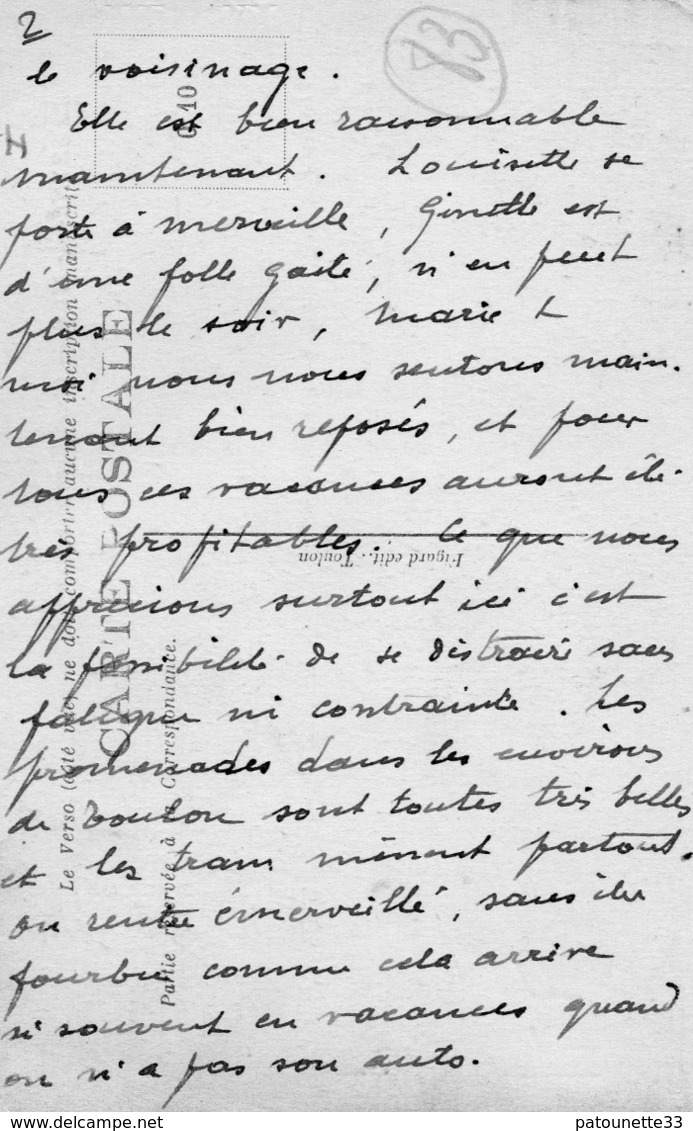 2
83
le voisinage.
Elle est bien raisonnable
maintenant. Louisette se
porte à merveille, Ginette est
d'une folle gaité, n'en peut
plus le soir, Marie &
moi nous nous sentons main-
tenant bien reposés, et pour
tous ces vacances auront été
très profitables. Ce que nous
apprécions surtout ici c'est
la possibilité de se distraire sans
fatigue ni contrainte. Les
promenades dans les environs
de Toulon sont toutes très belles
et les trams mènent partout.
On rentre émerveillé, sans être
fourbu comme cela arrive
si souvent en vacances quand
on n'a pas son auto.
CARTE POSTALE
Le Verso (côté vue) ne doit comporter aucune inscription manuscrite
Partie réservée à la Correspondance.
Figard edit., Toulon
0 10
patounette33